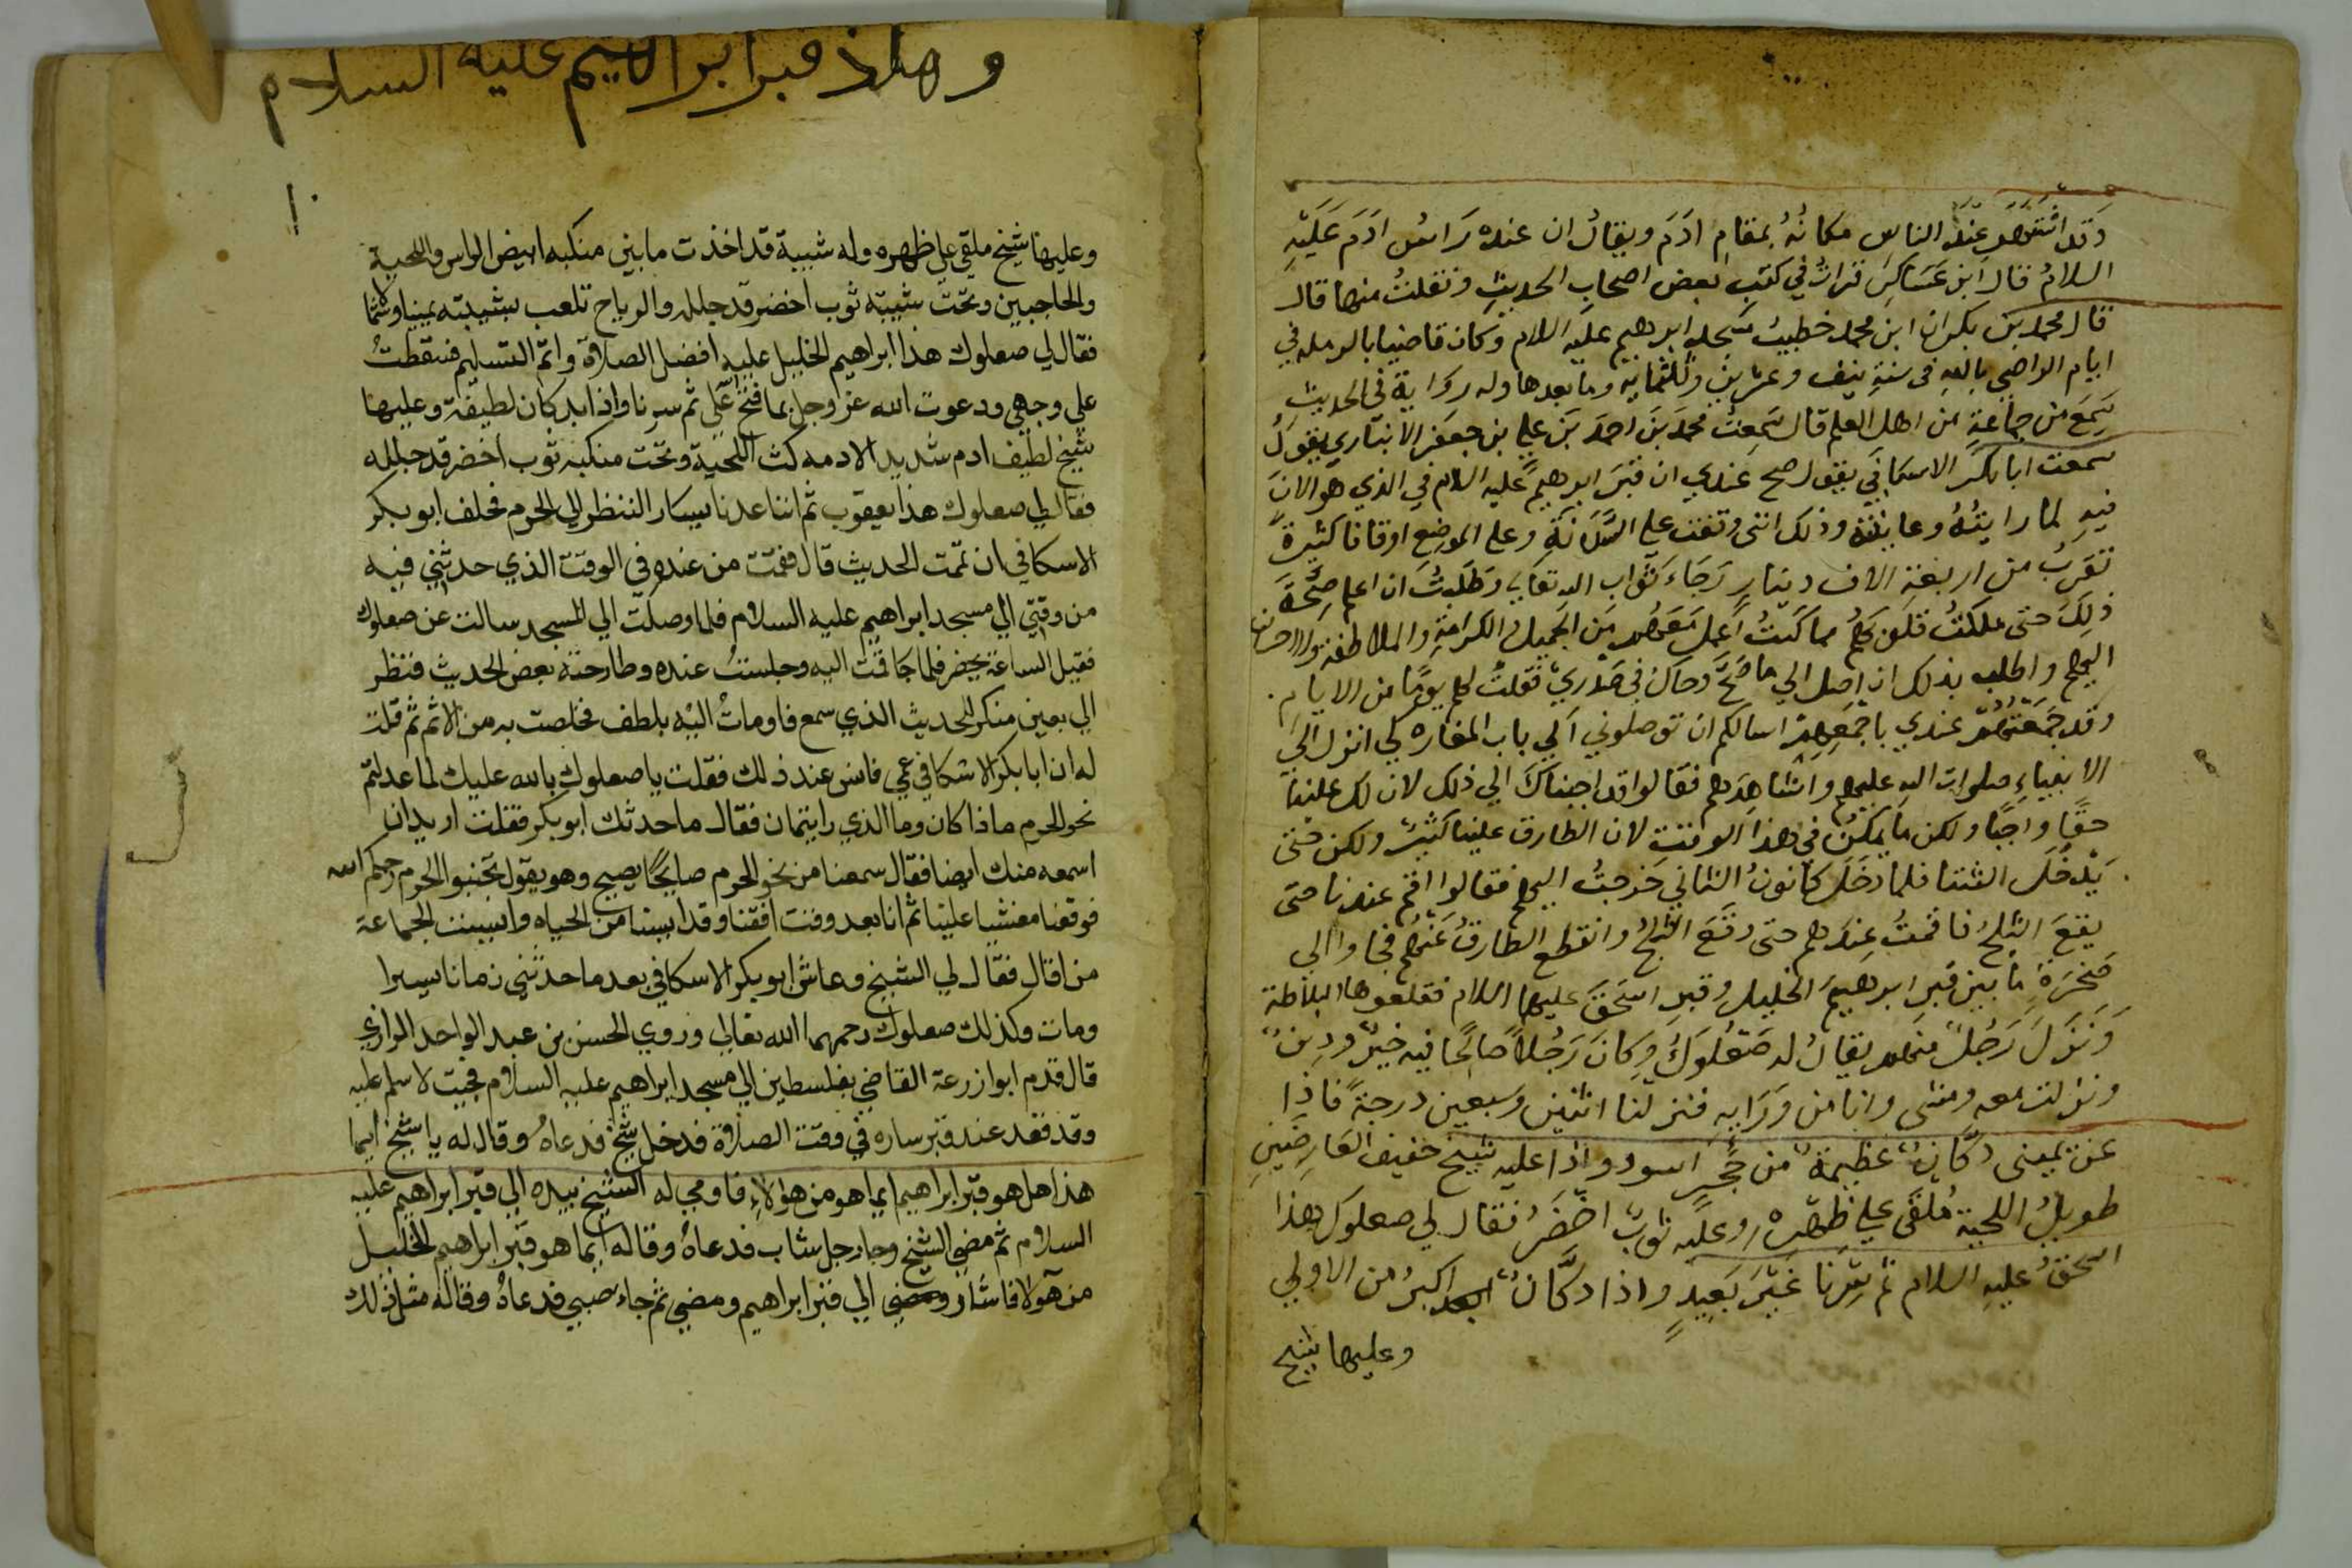 وقد اشتهر عند الناس مكانُهُ بمقام ادَمَ ويقالُ ان عنده رَاسُ ادَمَ عَلَيْهِ
السلامُ قال ابن عَسَاكِرَ قراتُ في كتب بعض اصحاب الحديثِ ونقلتُ منها قال
قال محمد بن بكران ابن محمد خطيبُ مَسْجِد ابرهيم عليه السلام وكان قاضيا بالرمله في
ايام الراضي بالله في سنةِ نيف وعشرين وثلثمايه وما بعدها وله رواية في الحديثِ
سَمِعَ من جماعةٍ من اهل العلم قال سَمِعتُ محمدَ بن احمدَ بن علي بن جعفر الانباري يقولُ
سمعت ابا بكر الاسكافي يقول صح عندي ان قبرَ ابرهيم عليه السلام في الذي هو الان
فيه لما رايتُهُ وعاينته وذلك انني وقفت علي السَّدَنَةِ وعلى الموضع اوقافا كثيرةً
تقربُ من اربعة الاف دينار رَجَاءَ ثواب الله تعالي وطلبتُ ان اعلم صِحَّةَ
ذلك حتى ملكتُ قلوبَهُم بما كنتُ اعمل معهم من الجميل والكرامة والملاطفة والاحسان
اليهم واطلب بذلك ان اصل الي ما صَحَّ وحاك في صَدْرِيْ فقلتُ لهم يومًا من الايام
وقد جَمَعْتُهُم عندي باجْمَعِهِمْ اسالكم ان توصلوني الي باب المغاره لكي انزل الي
الانبياءِ صلوات الله عليهم واشاهدهم فقالوا قد اجبناك الي ذلك لان لك علينا
حقًا واجبًا ولكن ما يمكن في هذا الوقت لان الطارق علينا كثيرٌ ولكن حتى
يَدْخُلَ الشتا فلما دَخَلَ كانونُ الثاني خرجتُ اليهم فقالوا اقم عندنا حتى
يقعَ الثلجُ فاقمتُ عندهم حتى وقعَ الثلجُ وانقطع الطارقُ عنهم فجاوا الي
صَخرةٍ ما بين قبرِ ابرهيمَ الخليلِ وقبرِ اسحقَ عليهما السلام فقلعوها البلاطة
وَنَزَلَ رَجُلٌ منهم يقالُ له صَعْلوَكُ وكانَ رَجُلاً صالحًا فيه خيرٌ ودينٌ
ونزلت معه ومشى وانا من وَرَايهِ فنزلنا اثنين وسبعين درجةً فاذا
عن يميني دكّانٌ عظيمةٌ من حَجَرٍ اسود واذا عليه شيخ خفيف العارضين
طويلُ اللحية مُلقَى علي ظهره وعليه ثوبٌ اخضَرُ فقال لي صعلوك هذا
اسحقُ عليه السلام ثم سِرنا غيرَ بَعيدٍ واذا دكَّانٌ اكبرُ من الاولي
وعليها شيخ
وهاذ قبر ابراهيم عليه السلام
١٠
وعليها شيخ ملقى علي ظهره وله شيبة قد اخذت ما بين منكبه ابيض الراس واللحية
والحاجبين وتحت شيبته ثوب اخضر قد جلله والرياح تلعب بشيبته يمينا وشمالا
فقال لي صعلوك هذا ابراهيم الخليل عليه افضل الصلاة واتم التسليم فسقطتُ
علي وجهي ودعوت الله عز وجل بما فتح عَلَي ثم سرنا واذا بدكان لطيفة وعليها
شيخ لطيف ادم شديد الادمه كث اللحية وتحت منكبه ثوب اخضر قد جلله
فقال لي صعلوك هذا يعقوب ثم اننا عدنا يسار الننظر الي الحرم فحلف ابو بكر
الاسكافي ان تمت الحديث قال فقمت من عنده في الوقت الذي حدثني فيه
من وقتي الي مسجد ابراهيم عليه السلام فلما وصلت الي المسجد سالت عن صعلوك
فقيل الساعة يحضر فلما جا قمت اليه وجلستُ عنده وطارحته بعض الحديث فنظر
الي بعين منكر للحديث الذي سمع فاوماتُ اليه بلطف تخلصت به من الاثم ثم قلت
له ان ابا بكر الاسكافي عمي فانس عند ذلك فقلت يا صعلوك بالله عليك لما عدلتم
نحو الحرم ماذا كان وما الذي رايتمان فقال ما حدثك ابو بكر فقلت اريد ان
اسمعه منك ايضا فقال سمعنا من نحو الحرم صايحًا يصيح وهو يقول تجنبوا الحرم رحمكم الله
فوقعنا مغشيا علينا ثم انا بعد وقت افقنا وقد ايسنا من الحياه وايسنت الجماعة
منا قال فقال لي الشيخ وعاش ابو بكر الاسكافي بعد ما حدثني زمانا يسيرا
ومات وكذلك صعلوك رحمهما الله تعالي وروي الحسن بن عبد الواحد الرازي
قال قدم ابوا زرعة القاضي بفلسطين الي مسجد ابراهيم عليه السلام فجيت لاسلم عليه
وقد قعد عند قبر ساره في وقت الصلاة فدخل شيخ فدعاهُ وقال له يا شيخ ايما
هذا هل هو قبر ابراهيم ايما هو من هؤلاءِ فاومي له الشيخ بيده الي قبر ابراهيم عليه
السلام ثم مضي الشيخ وجا رجل شاب فدعاهُ وقاله ايما هو قبر ابراهيم الخليل
من هولا فاشار ومضي الي قبر ابراهيم ومضي ثم جاء صبي فدعاهُ وقاله مثل ذلك